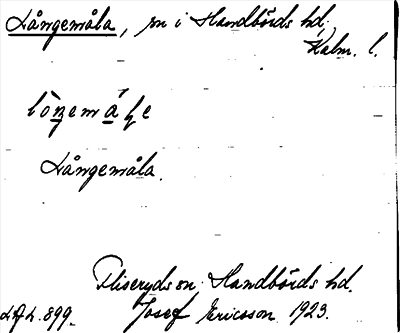 Långemåla, sn i Handbörds hd,
Kalm. l.
lòŋemáɭe
Långemåla.
Fliseryds sn Handbörds hd.
LAL. 899. Josef Ericsson 1923.